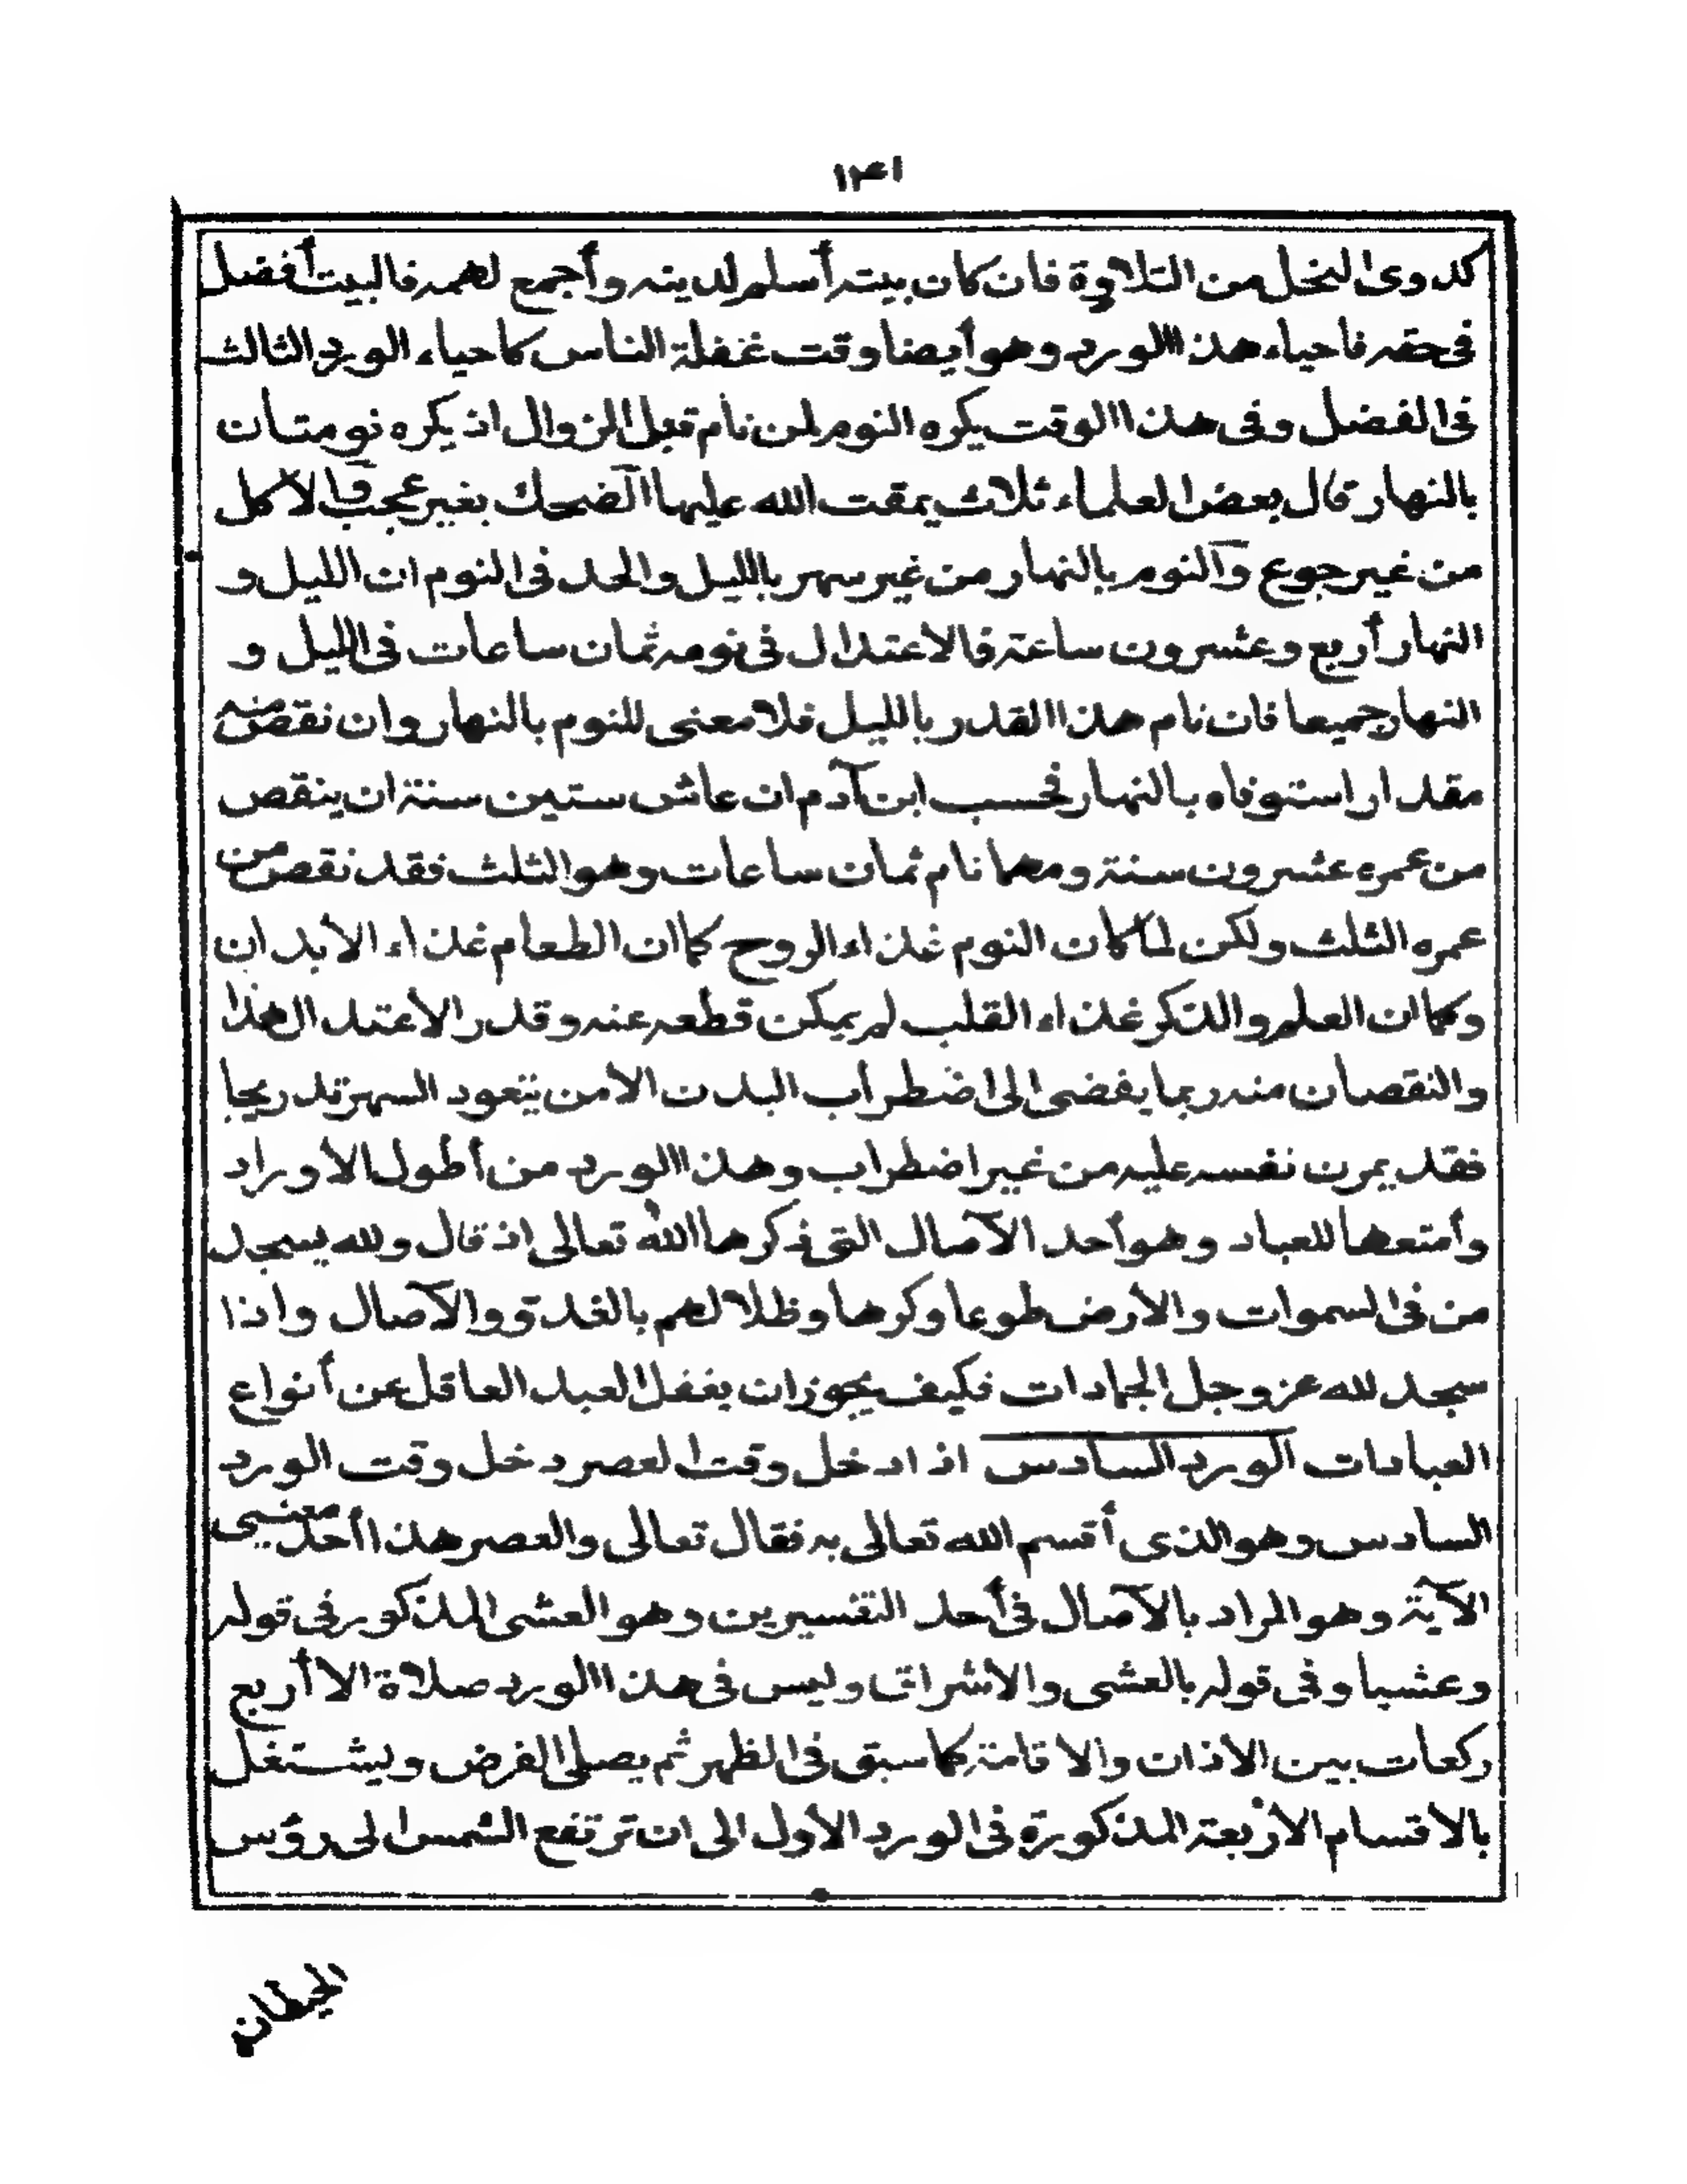 ١٣٤١
كدوى النحل من التلاوة فان كان بيته أسلم لدينه وأجمع لهمه فالبيت أفضل
فى حقه فاحياء هذا الورد وهو أيضا وقت غفلة الناس كاحياء الورد الثالث
فى الفضل وفى هذا الوقت يكره النوم لمن نام قبل الزوال اذ يكره نومتان
بالنهار قال بعض العلماء ثلاث يمقت الله عليها الضحك بغير عجب والأكل
من غير جوع والنوم بالنهار من غير سهر بالليل والحد فى النوم ان الليل و
النهار أربع وعشرون ساعة فالاعتدال فى نومه ثمان ساعات فى الليل و
النهار جميعا فان نام هذا القدر بالليل فلا معنى للنوم بالنهار وان نقص منه
مقدار استوفاه بالنهار فحسب ابن آدم ان عاش ستين سنة ان ينقص
من عمره عشرون سنة ومهما نام ثمان ساعات وهو الثلث فقد نقص من
عمره الثلث ولكن لما كان النوم غذاء الروح كما ان الطعام غذاء الأبدان
وكما ان العلم والذكر غذاء القلب لم يمكن قطعه عنه وقدر الأعتدال هذا
والنقصان منه ربما يفضى الى اضطراب البدن الأمن يتعود السهر تدريجا
فقد يمرن نفسه عليه من غير اضطراب وهذا الورد من أطول الأوراد
وأمتعها للعباد وهو أحد الآصال التى ذكرها الله تعالى اذ قال ولله يسجد
من فى السموات والأرض طوعا وكرها وظلالهم بالغدو والآصال واذا
سجد لله عز وجل الجمادات فكيف يجوز ان يغفل العبد العاقل عن أنواع
العبادات الورد السادس اذا دخل وقت العصر دخل وقت الورد
السادس وهو الذى أقسم الله تعالى به فقال تعالى والعصر هذا أحد معنيى
الآية وهو المراد بالآصال فى أحد التفسيرين وهو العشى المذكور فى قوله
وعشيا وفى قوله بالعشى والأشراق وليس فى هذا الورد صلاة الا أربع
ركعات بين الأذان والاقامة كما سبق فى الظهر ثم يصلى الفرض ويشتغل
بالاقسام الأربعة المذكورة فى الورد الأول الى ان ترتفع الشمس الى رؤس
الحيطان